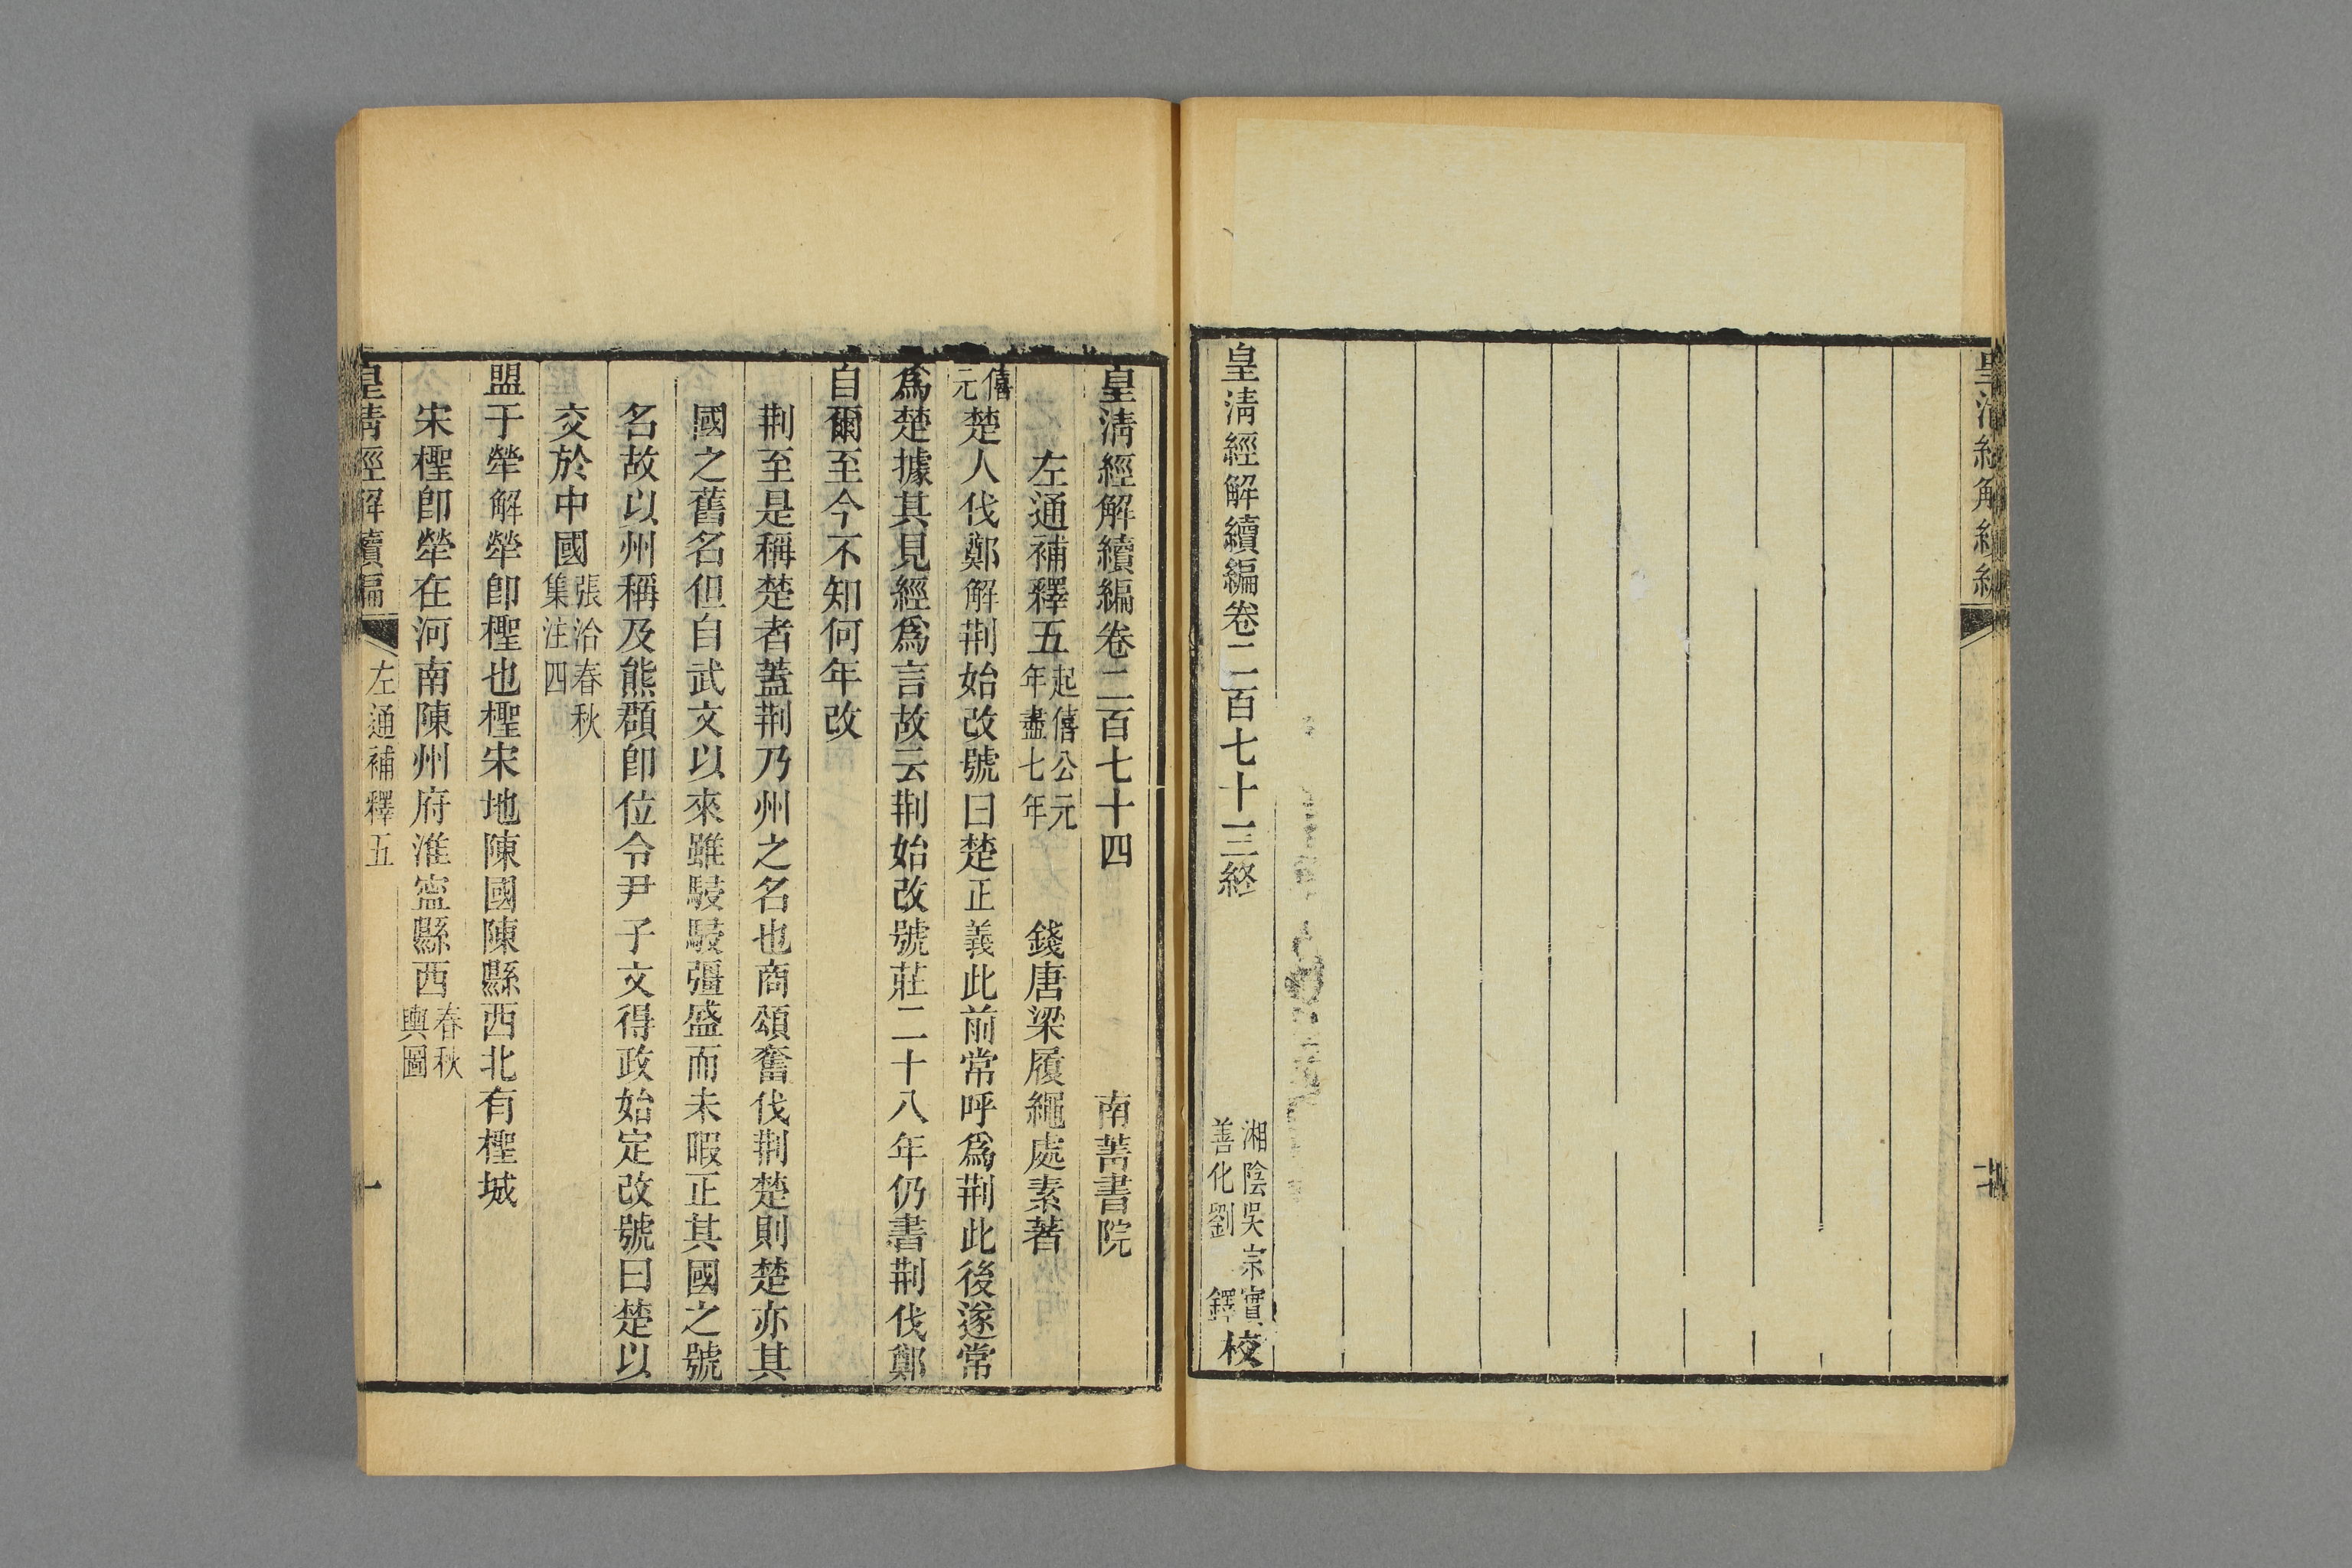 皇清經解續編
皇清經解續編卷二百七十三終
湘陰吳宗實
善化劉 鐸校
皇清經解續編卷二百七十四 南菁書院
左通補釋五 起僖公元年盡七年 錢唐梁履繩處素著
僖元 楚人伐鄭解荆始改號曰楚正義此前常呼爲荆此後遂常
爲楚據其見經爲言故云荆始改號莊二十八年仍書荆伐鄭
自爾至今不知何年改
荆至是稱楚者蓋荆乃州之名也商頌奮伐荆楚則楚亦其
國之舊名但自武文以來雖駸駸彊盛而未暇正其國之號
名故以州稱及熊頵卽位令尹子文得政始定改號曰楚以
交於中國 張洽春秋集注四
盟于犖解犖卽檉也檉宋地陳國陳縣西北有檉城
宋檉卽犖在河南陳州府淮寧縣西 春秋輿圖
皇清經解續編 左通補釋五 一